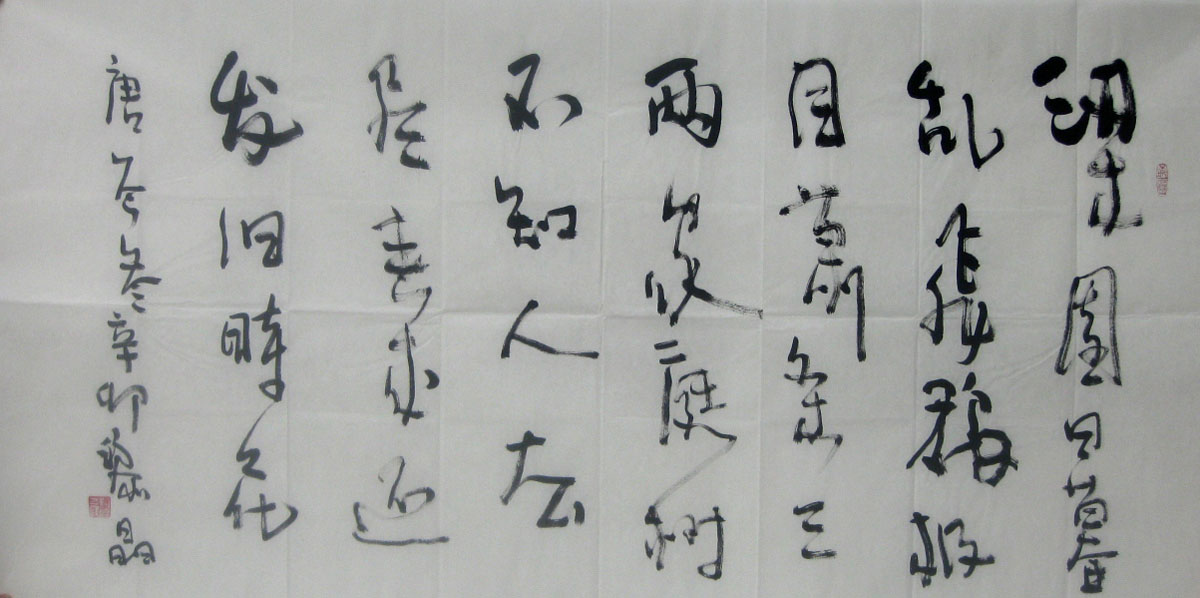 梁园日暮
乱飛鸦极
目萧条三
两家庭树
不知人去
尽春来还
发旧時花
唐岑参辛卯黎晶